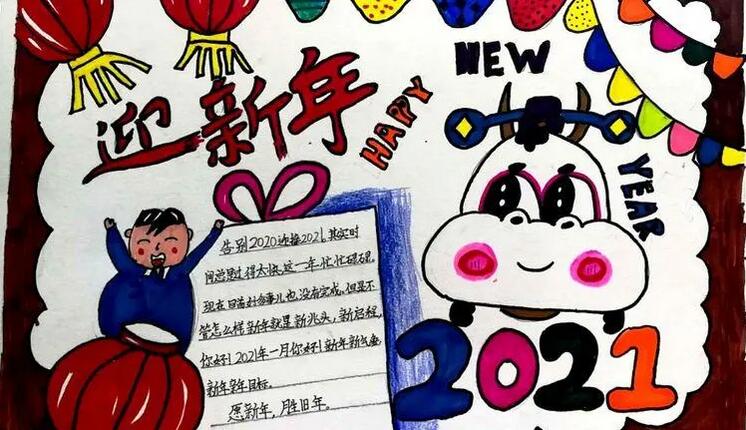 迎新年
HAPPY
NEW
YEAR
告别2020迎接2021,其实时
间总是过得太快,这一年忙忙碌碌,
现在回首好多事儿也没有完成,但是不
管怎么样新年就是新兆头,新启程,
你好!2021年一月你好!新年新气象
新年新目标。
愿新年,胜旧年。
2021